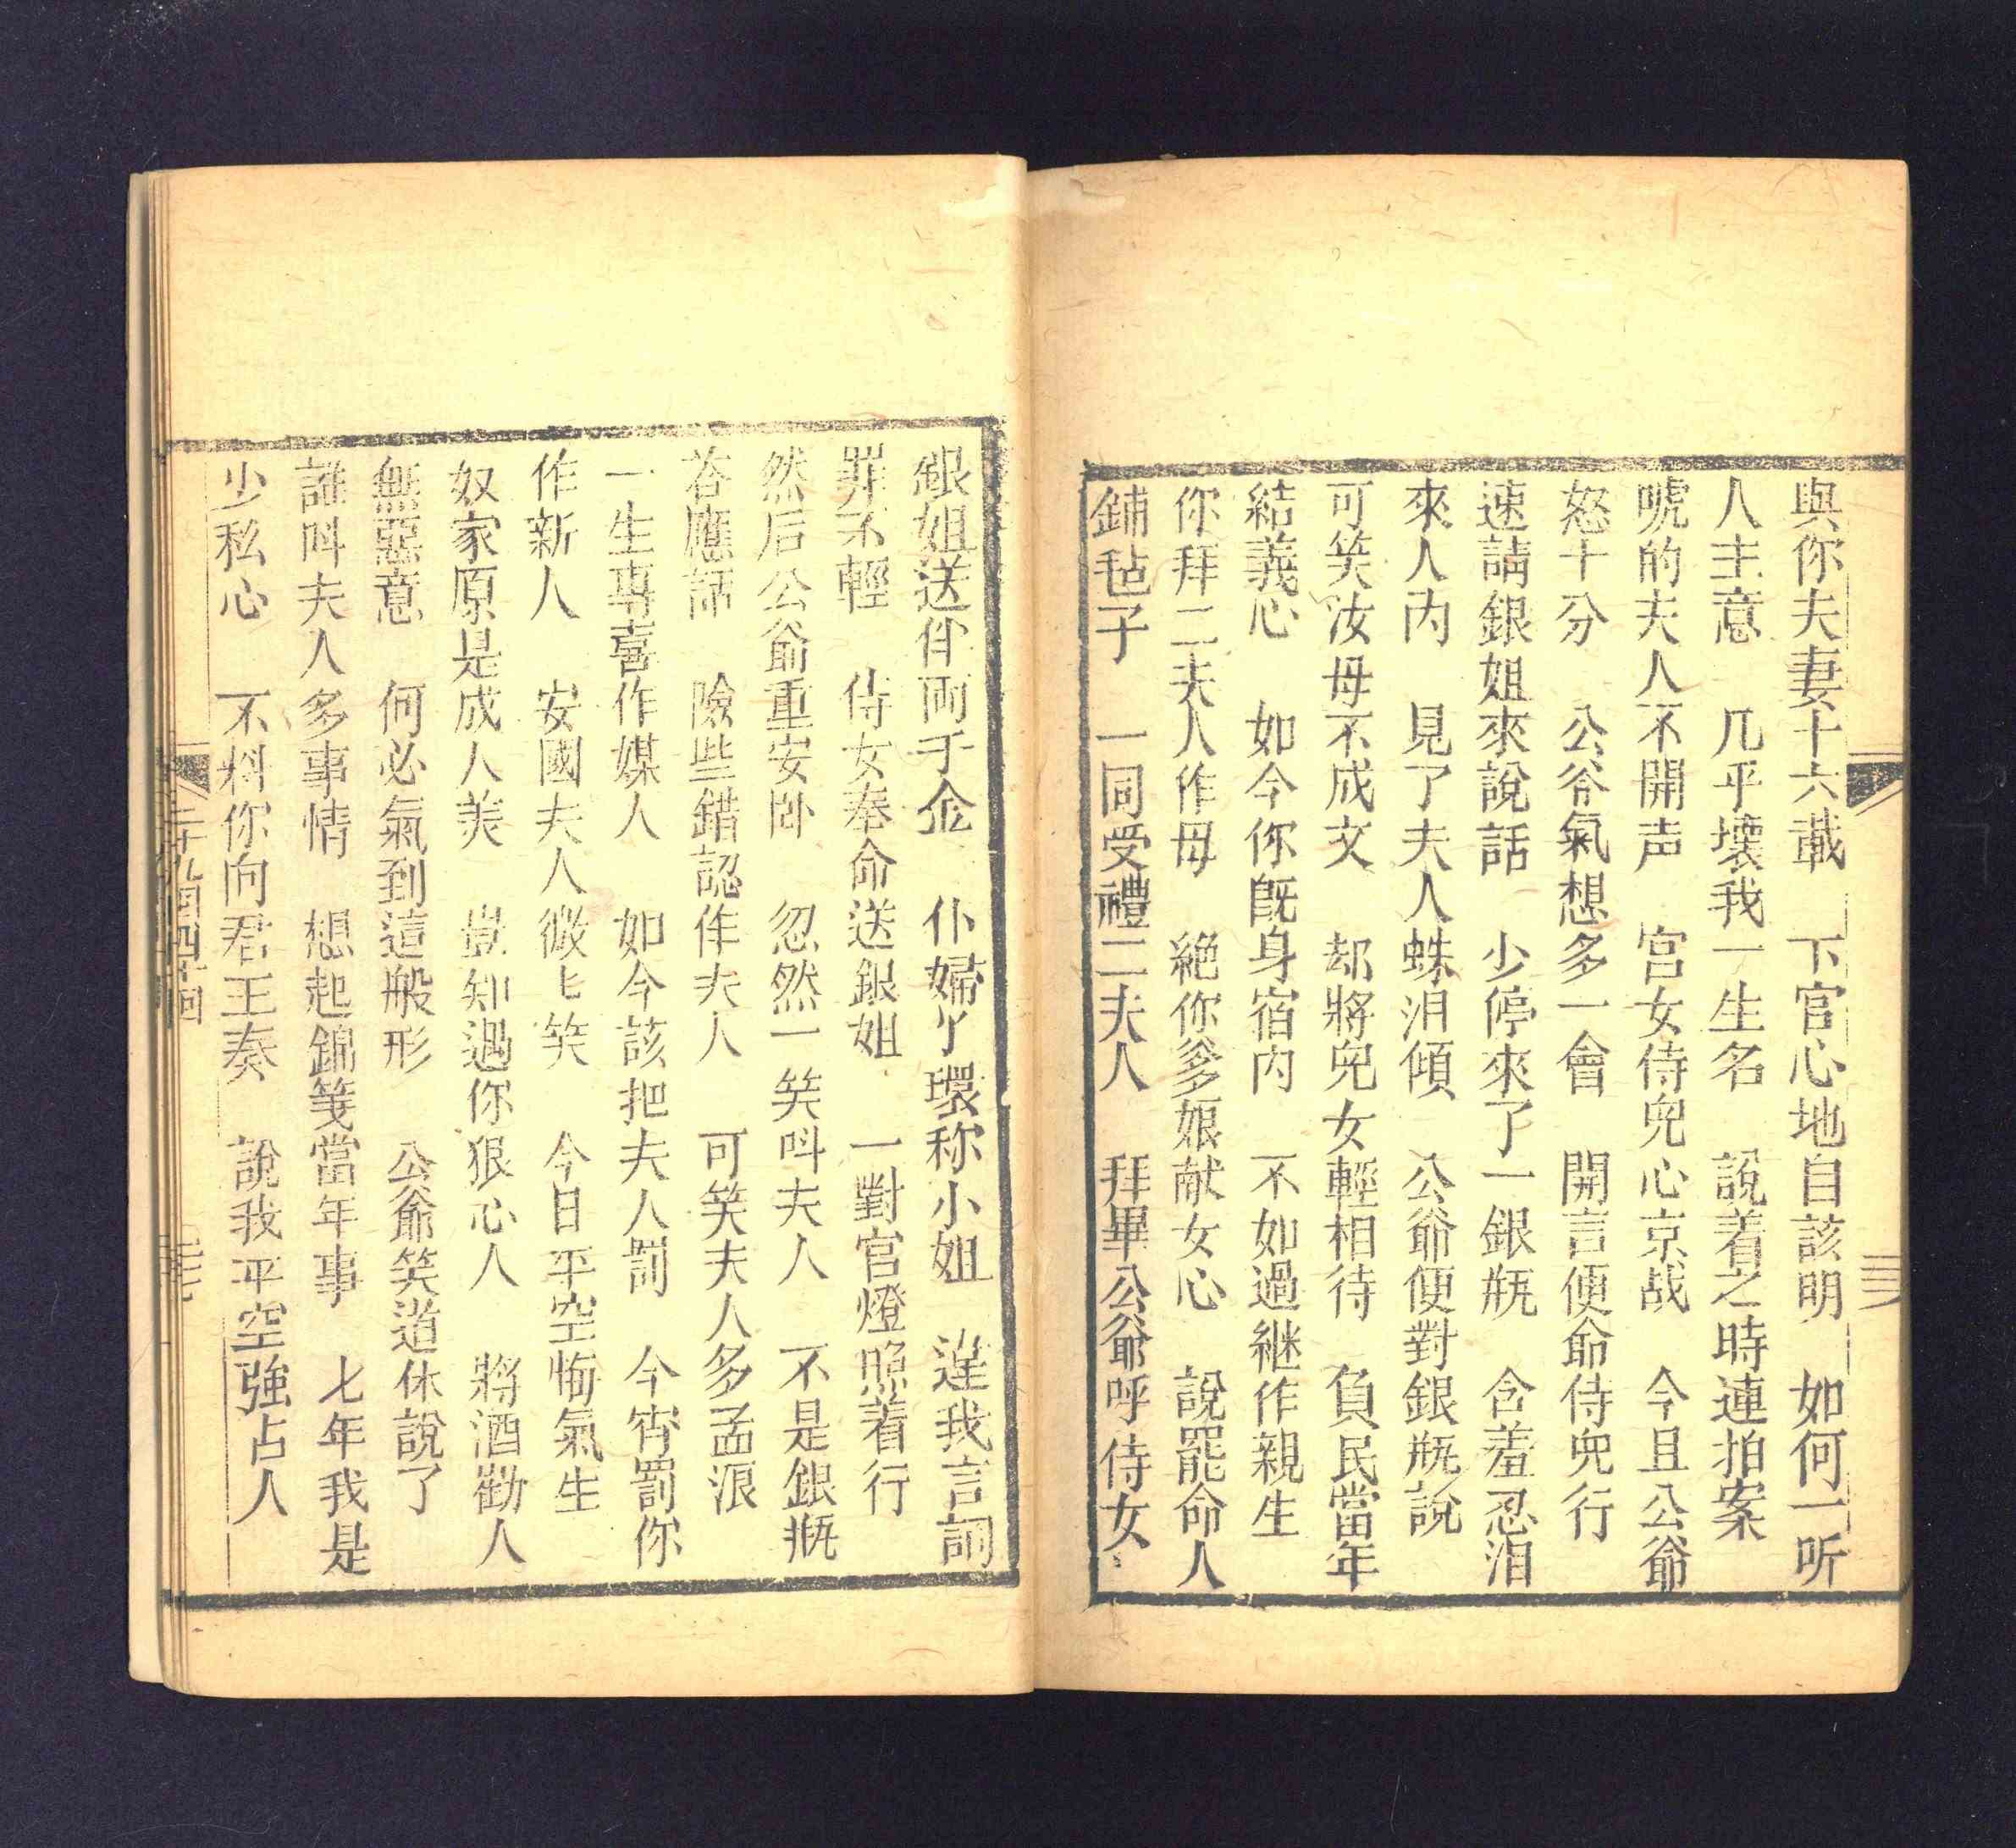 與你夫妻十六載　下官心地自該明　如何一听
人主意　几乎壞我一生名　說着之時連拍案
唬的夫人不開声　宮女侍児心京战　今且公爺
怒十分　公爷氣想多一會　開言便命侍児行
速請銀姐來說話　少停來了一銀瓶　含羞忍泪
來人内　見了夫人蛛泪傾　公爺便對銀瓶說
可笑汝母不成文　却將児女輕相待　負民當年
結義心　如今你既身宿内　不如過継作親生
你拜二夫人作母　絶你爹娘献女心　說罷命人
鋪毡子　一同受禮二夫人　拜畢公爺呼侍女
銀姐送伴兩千金　仆婦丫環称小姐　違我言詞
罪不輕　侍女奉命送銀姐　一對官燈照着行
然后公爺重安卧　忽然一笑呌夫人　不是銀瓶
荅應話　險些錯認作夫人　可笑夫人多孟浪
一生專喜作媒人　如今該把夫人罰　今宵罰你
作新人　安國夫人微匕笑　今日平空悔氣生
奴家原是成人美　豈知遇你狠心人　將酒勸人
無惡意　何必氣到這般形　公爺笑道休說了
誰呌夫人多事情　想起錦箋當年事　七年我是
少私心　不料你向君王奏　說我平空強占人